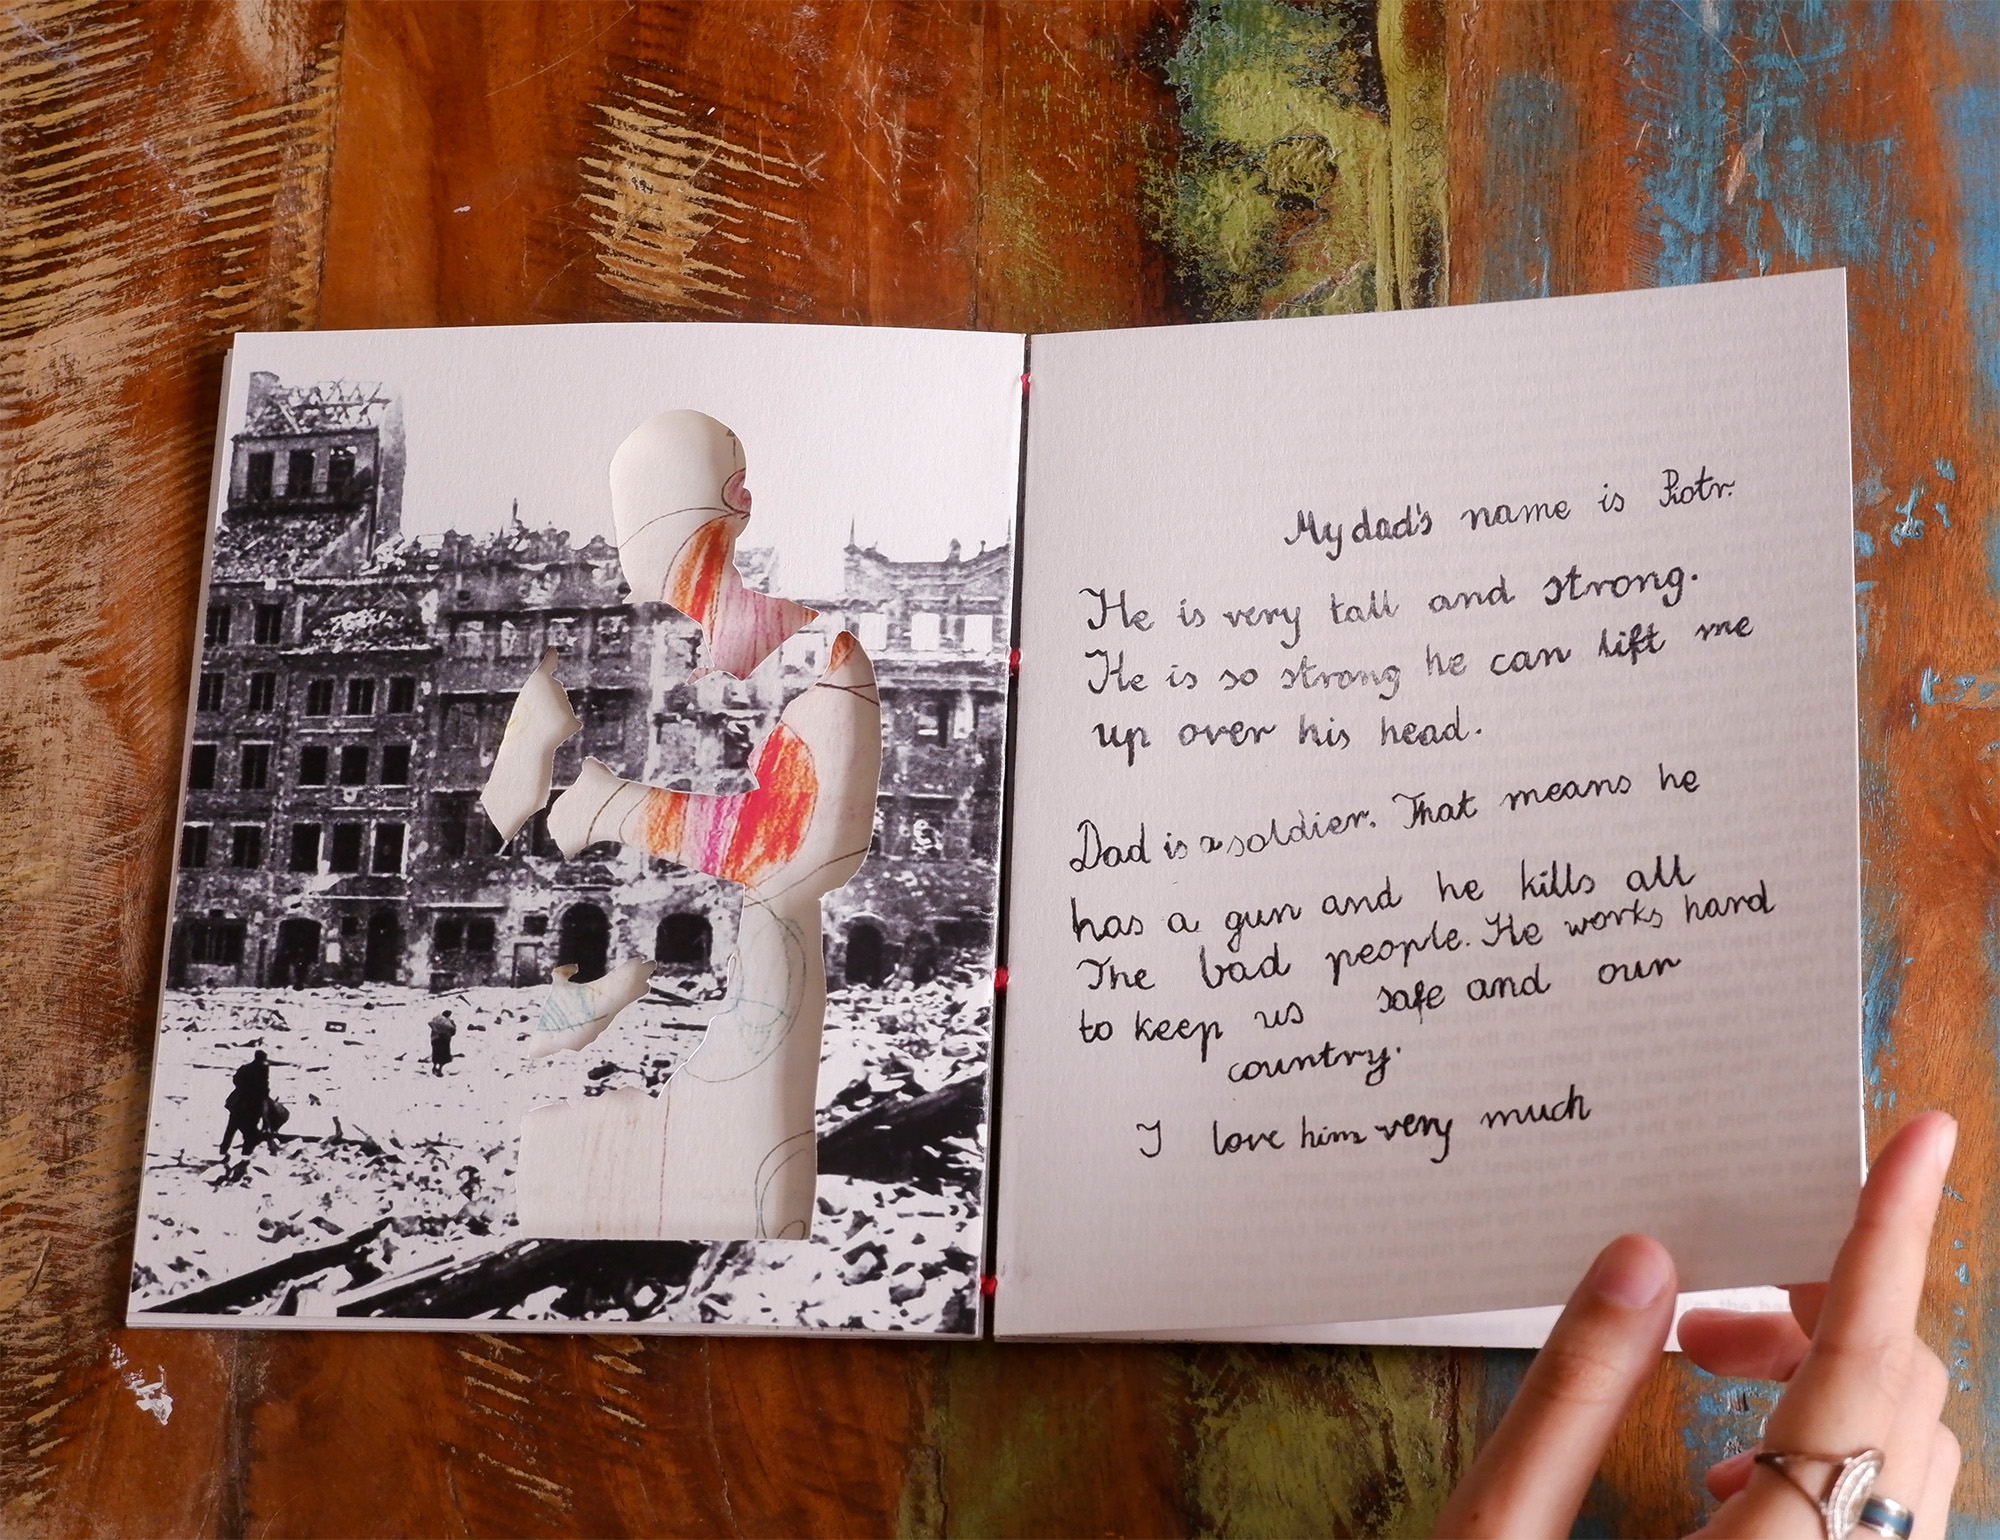 My dad's name is Piotr.
He is very tall and strong.
He is so strong he can lift me
up over his head.
Dad is a soldier. That means he
has a gun and he kills all
The bad people. He works hard
to keep us safe and our
country.
I love him very much